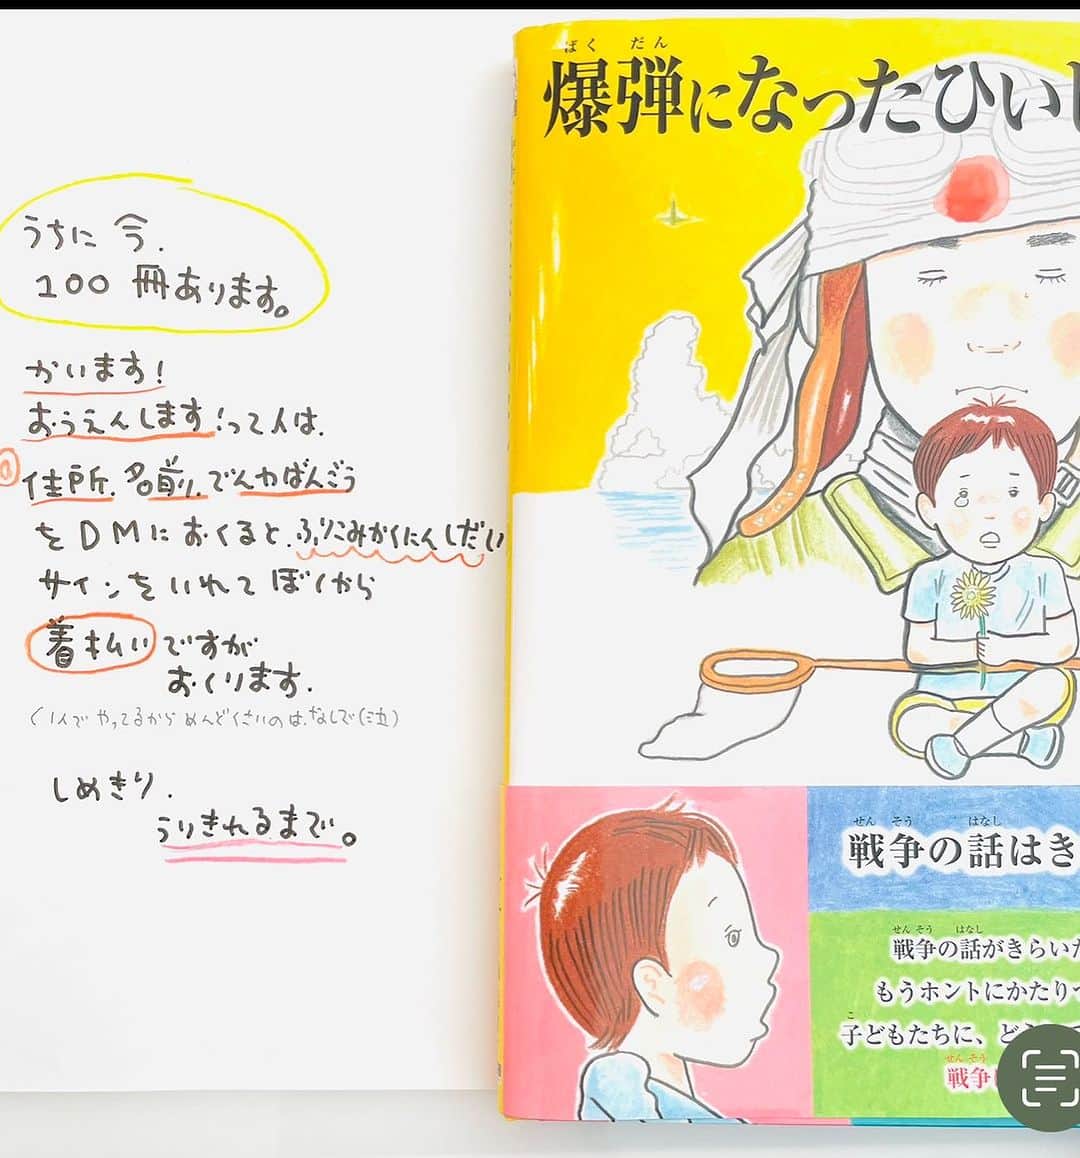 うちに 今.
100 冊あります。
かいます!
おうえんします!って人は.
住所. 名前. でんわばんごう
をDMにおくると.ふりこみかくにんしだい
サインをいれて ぼくから
着払いですが
おくります.
(1人でやってるから めんどくさいのは.なしで(泣)
しめきり.
うりきれるまで。
ばく だん
爆弾になったひいじ
せん そう はなし
戦争の話はき
せん そう はなし
戦争の話がきらいだ
もうホントにかたりつ
こ
子どもたちに、ど
せん そう
戦争